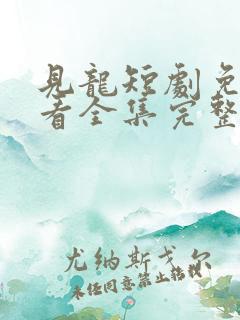 見龍短劇免
看全集完整
尤纳斯戈尔
未经同意禁止转载